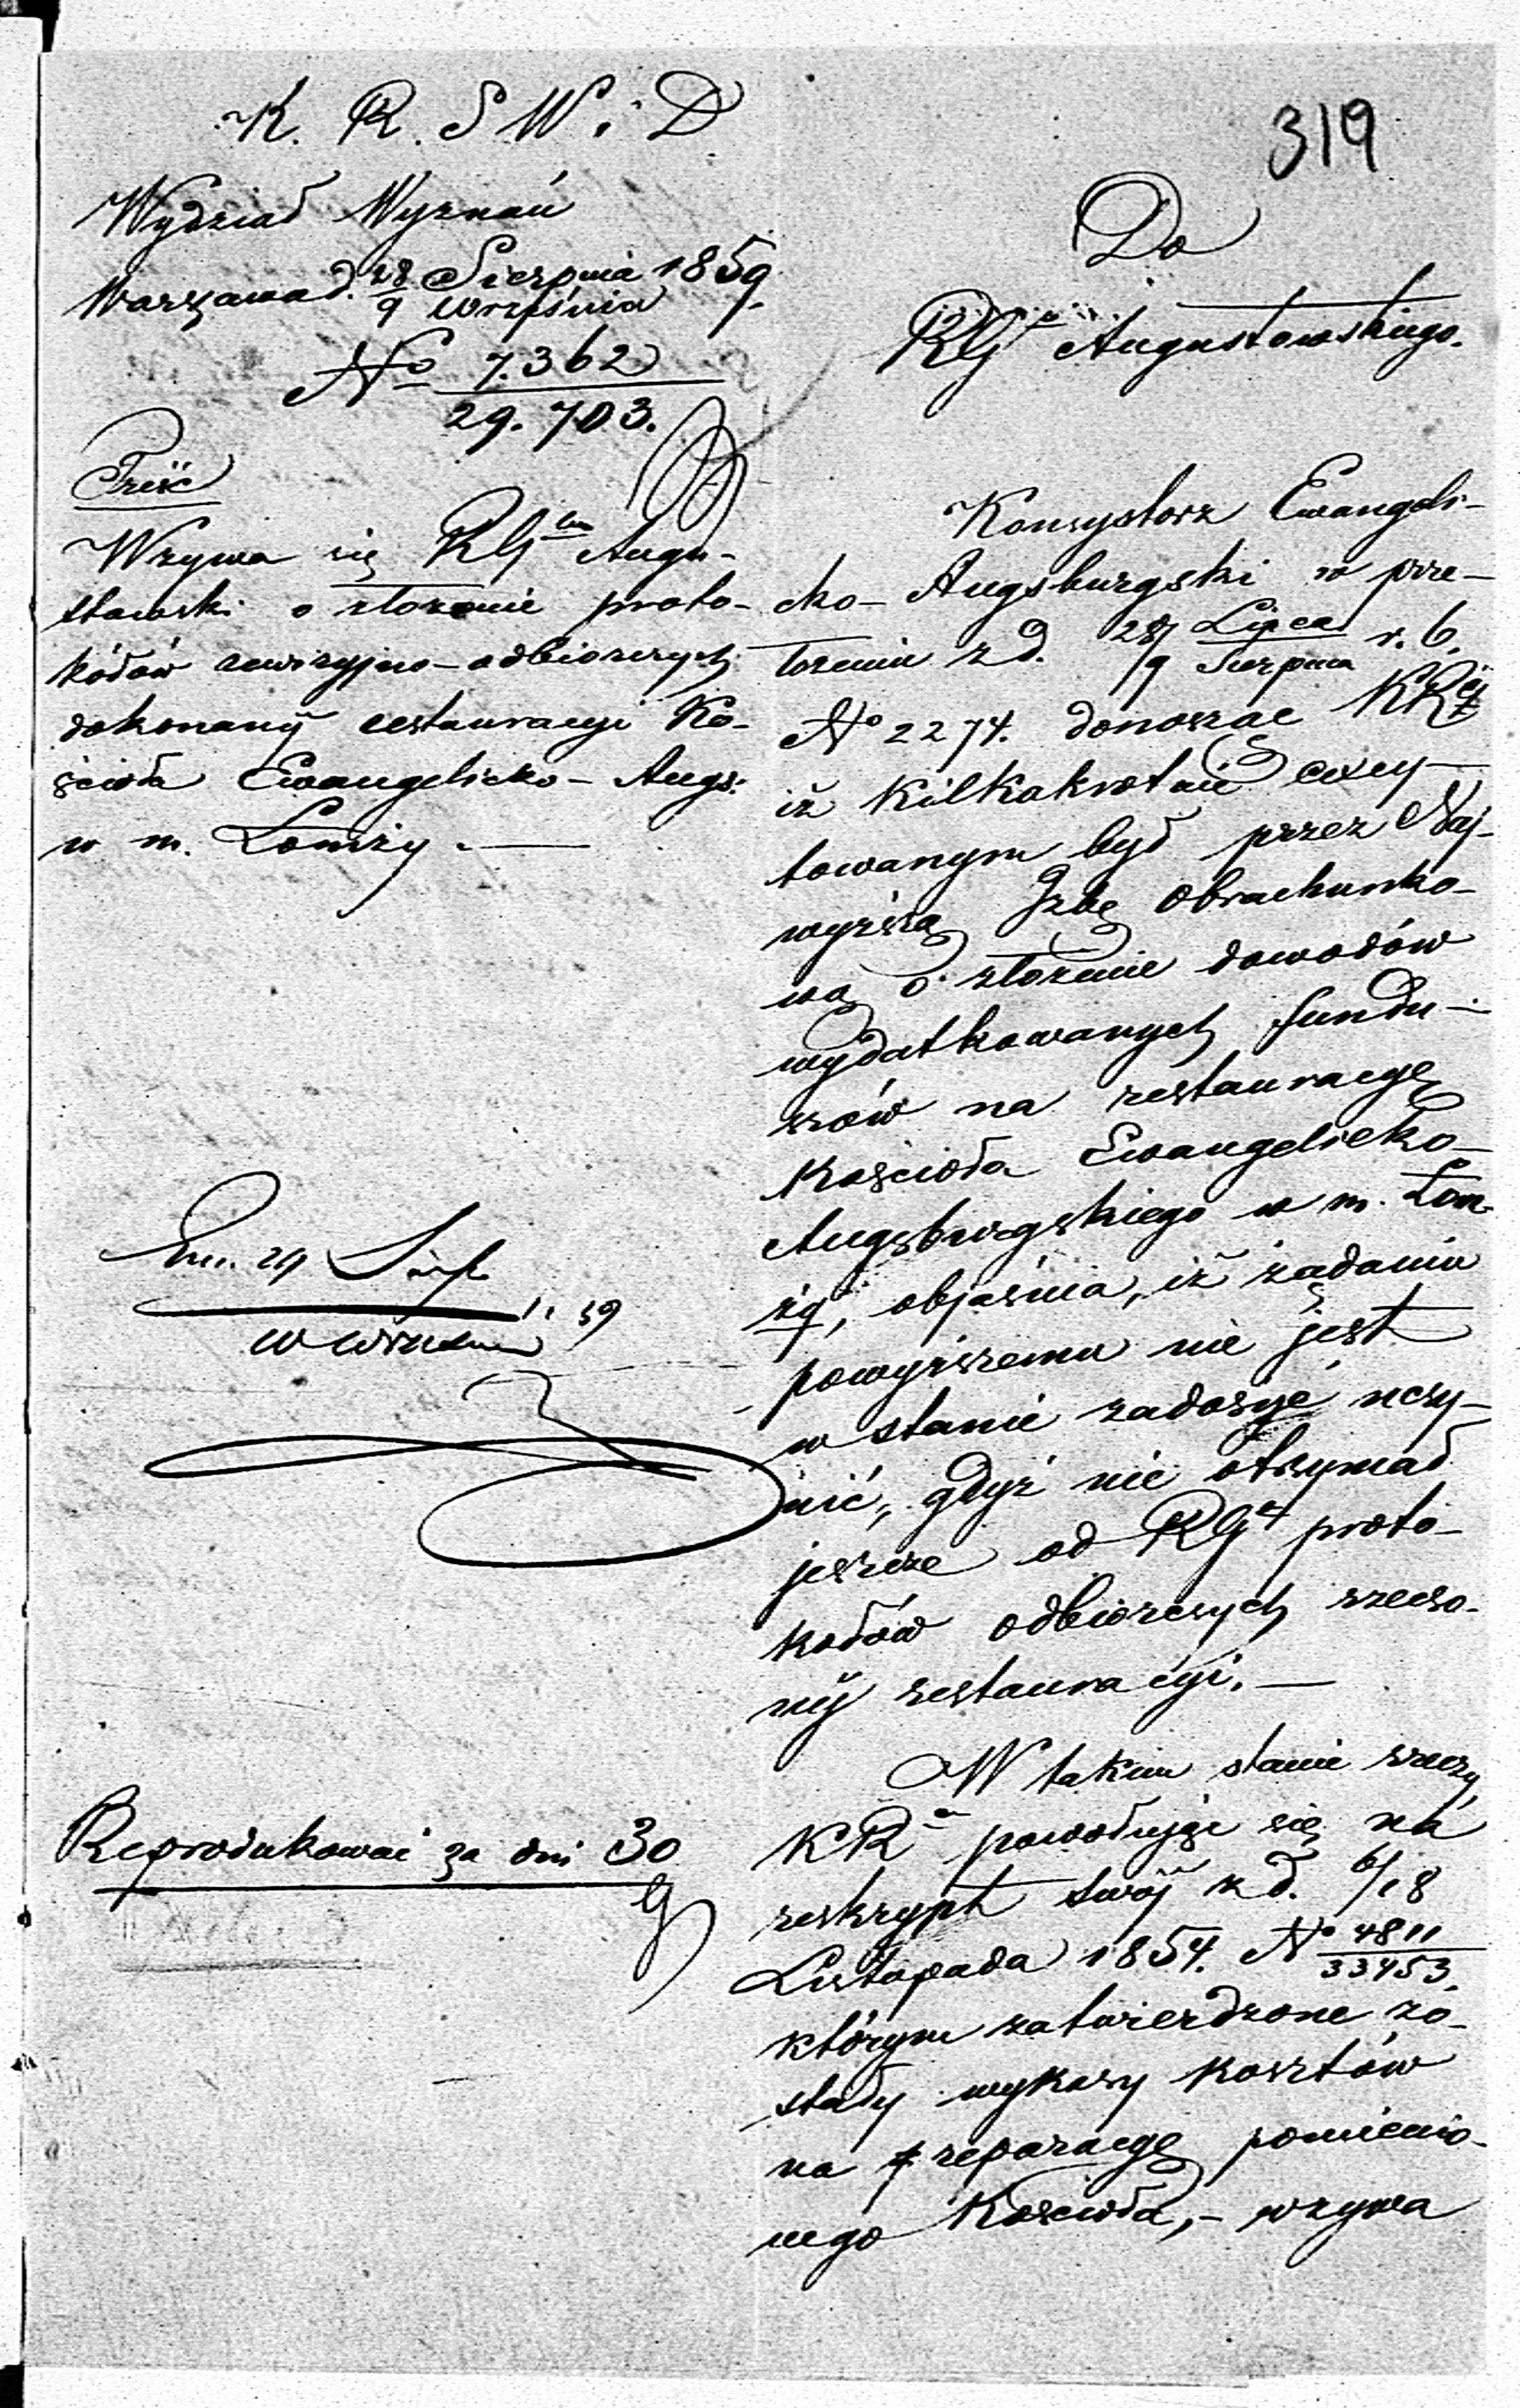 319
K. R. S W. i D
Wydział Wyznań
Warszawa d. 28 Sierpnia 1859.
9 Września
No 7.362
29.703.
Treść
Wzywa się RGlnu Augu-
stowski o złożenie proto-
kółów rewizyjno-odbiorczych
dokonanӱ restauracyi Ko-
ścioła Ewangelicko-Augs:
w m. Łomży.—
29 Sierp
59
Wrześnie
Reprodukować za dni 30
Do
RGlu Augustowskiego.
Konsystorz Ewangeli-
cko-Augsburgski w prze-
łożeniu z d. 28/9 Lipca/Sierpnia r. b.
No 2274. donosząc KRej
iż kilkakrotnie excy-
towanym był przez Naj-
wyższą Izbę Obrachunko-
wą o złożenie dowodów
wydatkowanych fundu-
szów na restauracyę
Kościoła Ewangelicko-
Augsburgskiego w m. Łom-
ży, objaśnia, iż żądaniu
powyższemu nie jest
w stanie zadosyć uczy-
nić, gdyż nie otrzymał
jeszcze od RGu proto-
kołów odbiorczych rzeczo-
nӱ restauracyi.—
W takim stanie rzeczy
KRa powodując się na
reskrypt swóӱ z d. 6/18
Listopada 1854. No 4811
33453.
którym zatwierdzone zo-
stały wykazy kosztów
na reparacyę pomienio-
nego Kościoła,- wzywa